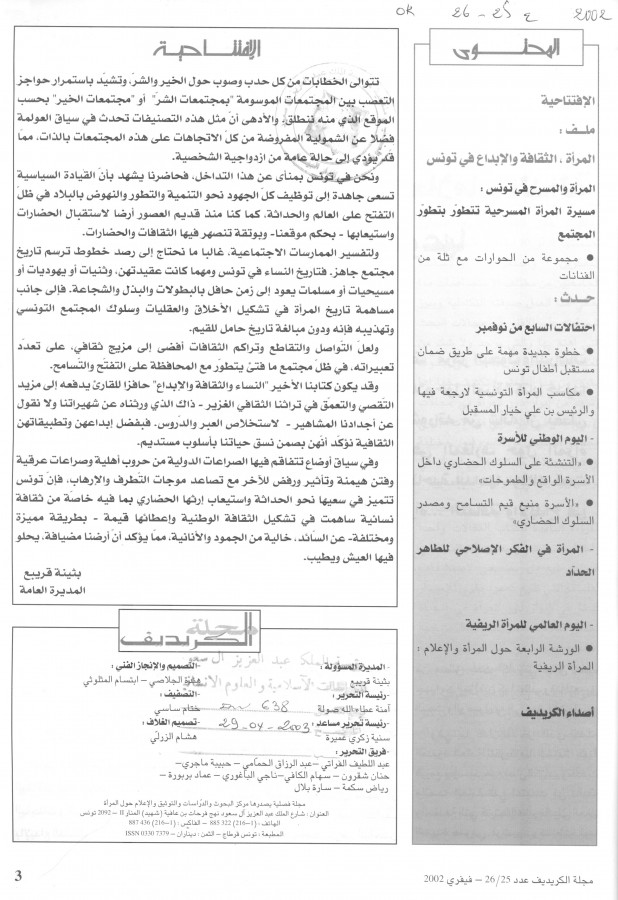 OR 26 - 25 ع 2002
المحتوى
الإفتتاحية
ملف :
المرأة ، الثقافة والإبداع في تونس
المرأة والمسرح في تونس :
مسيرة المرأة المسرحية تتطوّر بتطوّر
المجتمع
● مجموعة من الحوارات مع ثلة من
الفنانات
حدث :
احتفالات السابع من نوفمبر
● خطوة جديدة مهمة على طريق ضمان
مستقبل أطفال تونس
● مكاسب المرأة التونسية لارجعة فيها
والرئيس بن علي خيار المستقبل
- اليوم الوطني للأسرة
● «التنشئة على السلوك الحضاري داخل
الأسرة الواقع والطموحات»
● «الأسرة منبع قيم التسامح ومصدر
السلوك الحضاري»
- المرأة في الفكر الإصلاحي للطاهر
الحدّاد
- اليوم العالمي للمرأة الريفية
● الورشة الرابعة حول المرأة والإعلام :
المرأة الريفية
أصداء الكريديف
الإفتتاحية
تتوالى الخطابات من كل حدب وصوب حول الخير والشرّ، وتشيّد باستمرار حواجز
التعصب بين المجتمعات الموسومة "بمجتمعات الشرّ" أو "مجتمعات الخير" بحسب
الموقع الذي منه ننطلق، والأدهى أن مثل هذه التصنيفات تحدث في سياق العولمة
فضلا عن الشمولية المفروضة من كلّ الاتجاهات على هذه المجتمعات بالذات، ممّا
قد يؤدي إلى حالة عامة من ازدواجية الشخصية.
ونحن في تونس بمنأى عن هذا التداخل، فحاضرنا يشهد بأن القيادة السياسية
تسعى جاهدة إلى توظيف كلّ الجهود نحو التنمية والتطور والنهوض بالبلاد في ظلّ
التفتح على العالم والحداثة، كما كنا منذ قديم العصور أرضا لاستقبال الحضارات
واستيعابها - بحكم موقعنا- وبوتقة تنصهر فيها الثقافات والحضارات.
ولتفسير الممارسات الاجتماعية، غالبا ما نحتاج إلى رصد خطوط ترسم تاريخ
مجتمع جاهز. فتاريخ النساء في تونس ومهما كانت عقيدتهن، وثنيات أو يهوديات أو
مسيحيات أو مسلمات يعود إلى زمن حافل بالبطولات والبذل والشجاعة. فإلى جانب
مساهمة تاريخ المرأة في تشكيل الأخلاق والعقليات وسلوك المجتمع التونسي
وتهذيبه فإنه ودون مبالغة تاريخ حامل للقيم.
ولعلّ التواصل والتقاطع وتراكم الثقافات أفضى إلى مزيج ثقافي، على تعدّد
تعبيراته، في ظلّ مجتمع ما فتئ يتطوّر مع المحافظة على التفتح والتسامح.
وقد يكون كتابنا الأخير "النساء والثقافة والإبداع" حافزا للقارئ يدفعه إلى مزيد
التقصي والتعمق في تراثنا الثقافي الغزير - ذاك الذي ورثناه عن شهيراتنا ولا نقول
عن أجدادنا المشاهير - لاستخلاص العبر والدّروس. فبفضل إبداعهن وتطبيقاتهن
الثقافية نؤكّد أنهن يصمن نسق حياتنا بأسلوب مستديم.
وفي سياق أوضاع تتفاقم فيها الصراعات الدولية من حروب أهلية وصراعات عرقية
وفتن هيمنة وتأثير ورفض للآخر مع تصاعد موجات التطرف والإرهاب، فإن تونس
تتميز في سعيها نحو الحداثة واستيعاب إرثها الحضاري بما فيه خاصة من ثقافة
نسائية ساهمت في تشكيل الثقافة الوطنية وإعطائها قيمة - بطريقة مميزة
ومختلفة- عن السائد، خالية من الجمود والأنانية، ممّا يؤكد أن أرضنا مضيافة، يحلو
فيها العيش ويطيب.
بثينة قريبع
المديرة العامة
مجلة
الكريديف
-المديرة المسؤولة :
بثينة قريبع
-رئيسة التحرير :
آمنة عطاء الله صولة
-رئيسة تحرير مساعد :
سنية زكري عميرة
-التصميم والإنجاز الفني :
الجلاصي – ابتسام المثلوثي
-التصفيف :
ختام ساسي
-تصميم الغلاف :
هشام الزرلي
638
29-04-2003
الملك عبد العزيز آل سعود
الإسلامية والعلوم
- فريق التحرير :
عبد اللطيف الفراتي – عبد الرزاق الحمامي – حبيبة ماجري–
حنان شقرون – سهام الكافي–ناجي الباغوري – عماد بربورة –
رياض سكمة – سارة بلال
مجلة فصلية يصدرها مركز البحوث والدّراسات والتوثيق والإعلام حول المرأة
العنوان : شارع الملك عبد العزيز آل سعود نهج فرحات بن عافية (شهيد) المنار II – 2092 تونس
الهاتف : (1–216) 322 885 – الفاكس : (1–216) 436 887
المطبعة : تونس قرطاج – الثمن : ديناران – ISSN 0330 7379
مجلة الكريديف عدد 26/25 – فيفري 2002
3